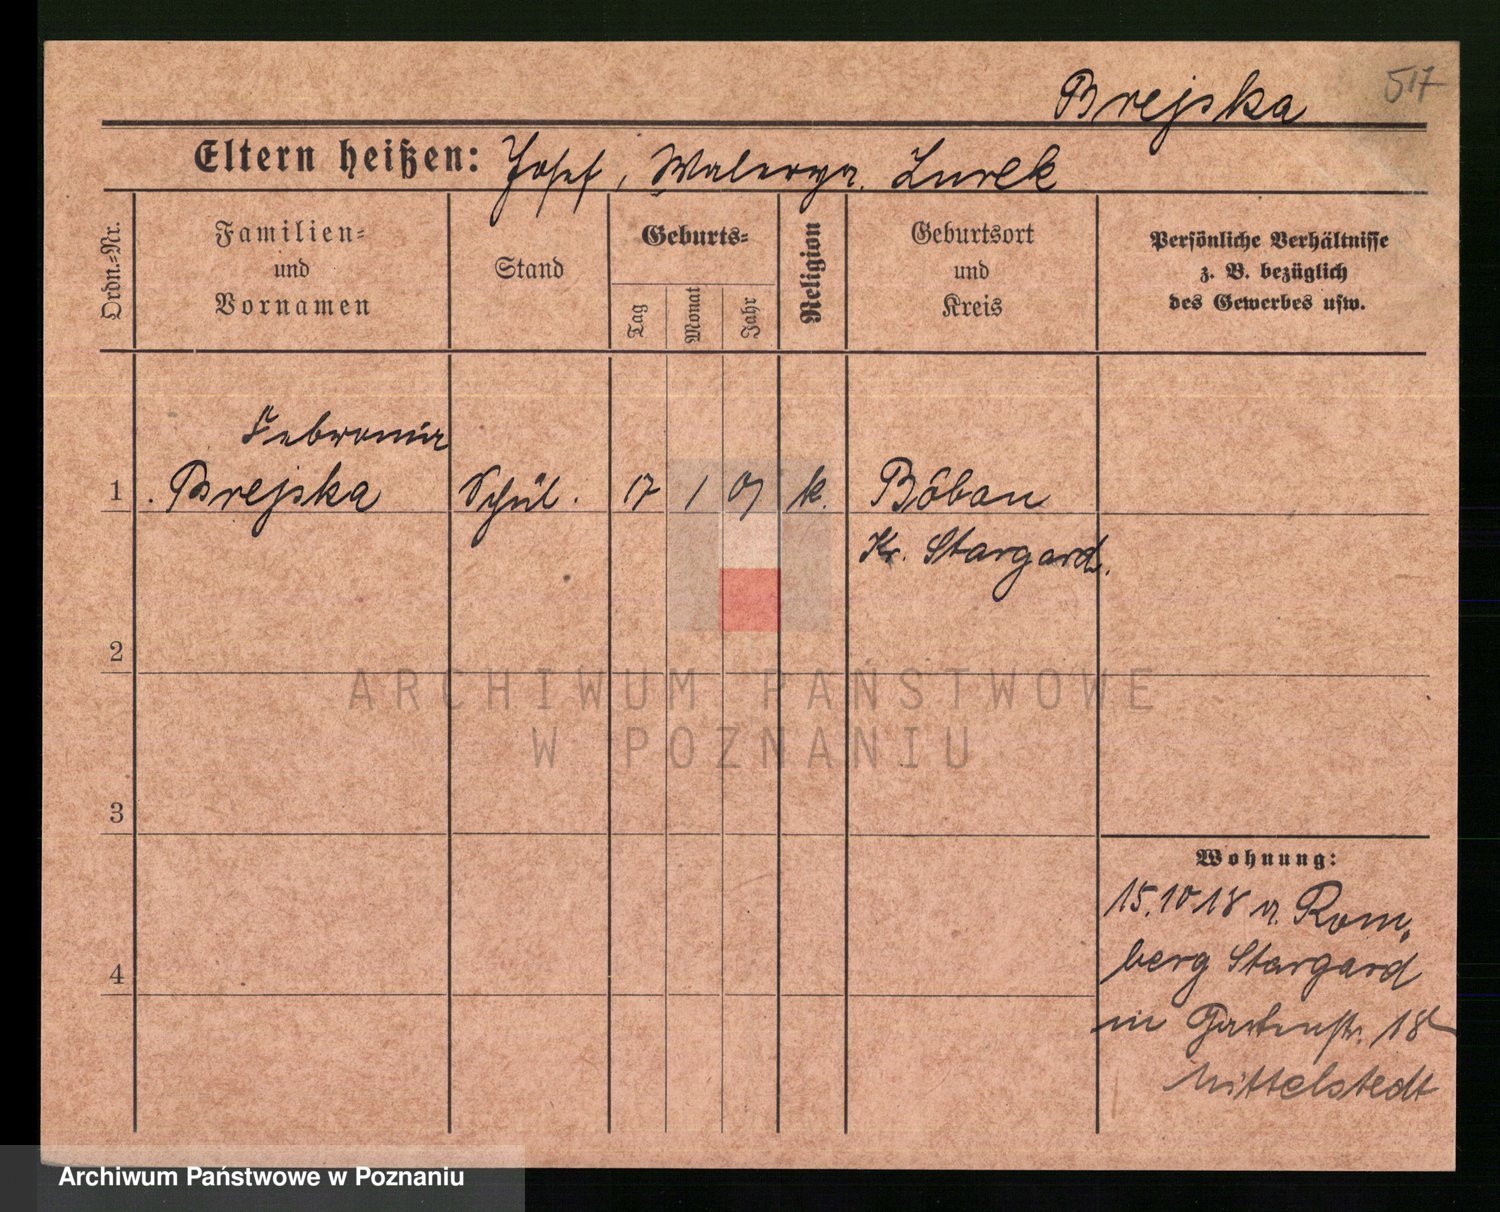 517
Brejska
Eltern heißen: Josef, Walerya Lurek
Ordn.-Nr.
Familien-
und
Vornamen
Stand
Geburts-
Tag
Monat
Jahr
Religion
Geburtsort
und
Kreis
Persönliche Verhältnisse
z. B. bezüglich
des Gewerbes usw.
Febronia
1 Brejska Schül. 17 1 07 k. Bôbau
Kr. Stargard.
2
ARCHIWUM PAŃSTWOWE
W POZNANIU
3
Wohnung:
15.10 18 v. Rom,
berg Stargard
in Gartenstr. 18
4
Mittelstedt
Archiwum Państwowe w Poznaniu